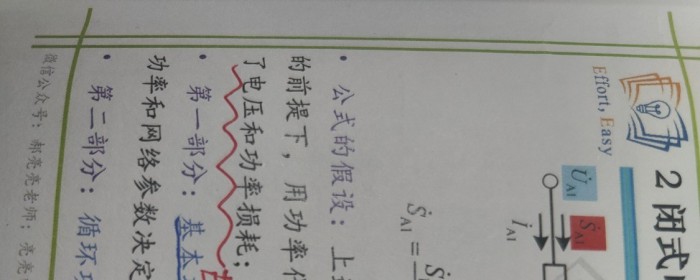 Effort, Easy
2 闭式
U̇A1
ṠA1
İA1
ṠA1 =
• 公式的假设：上
的前提下，用功率
了电压和功率损耗；
• 第一部分：基本
功率和网络参数决定
• 第二部分：循环
微信公众号：郝亮亮老师；亮亮